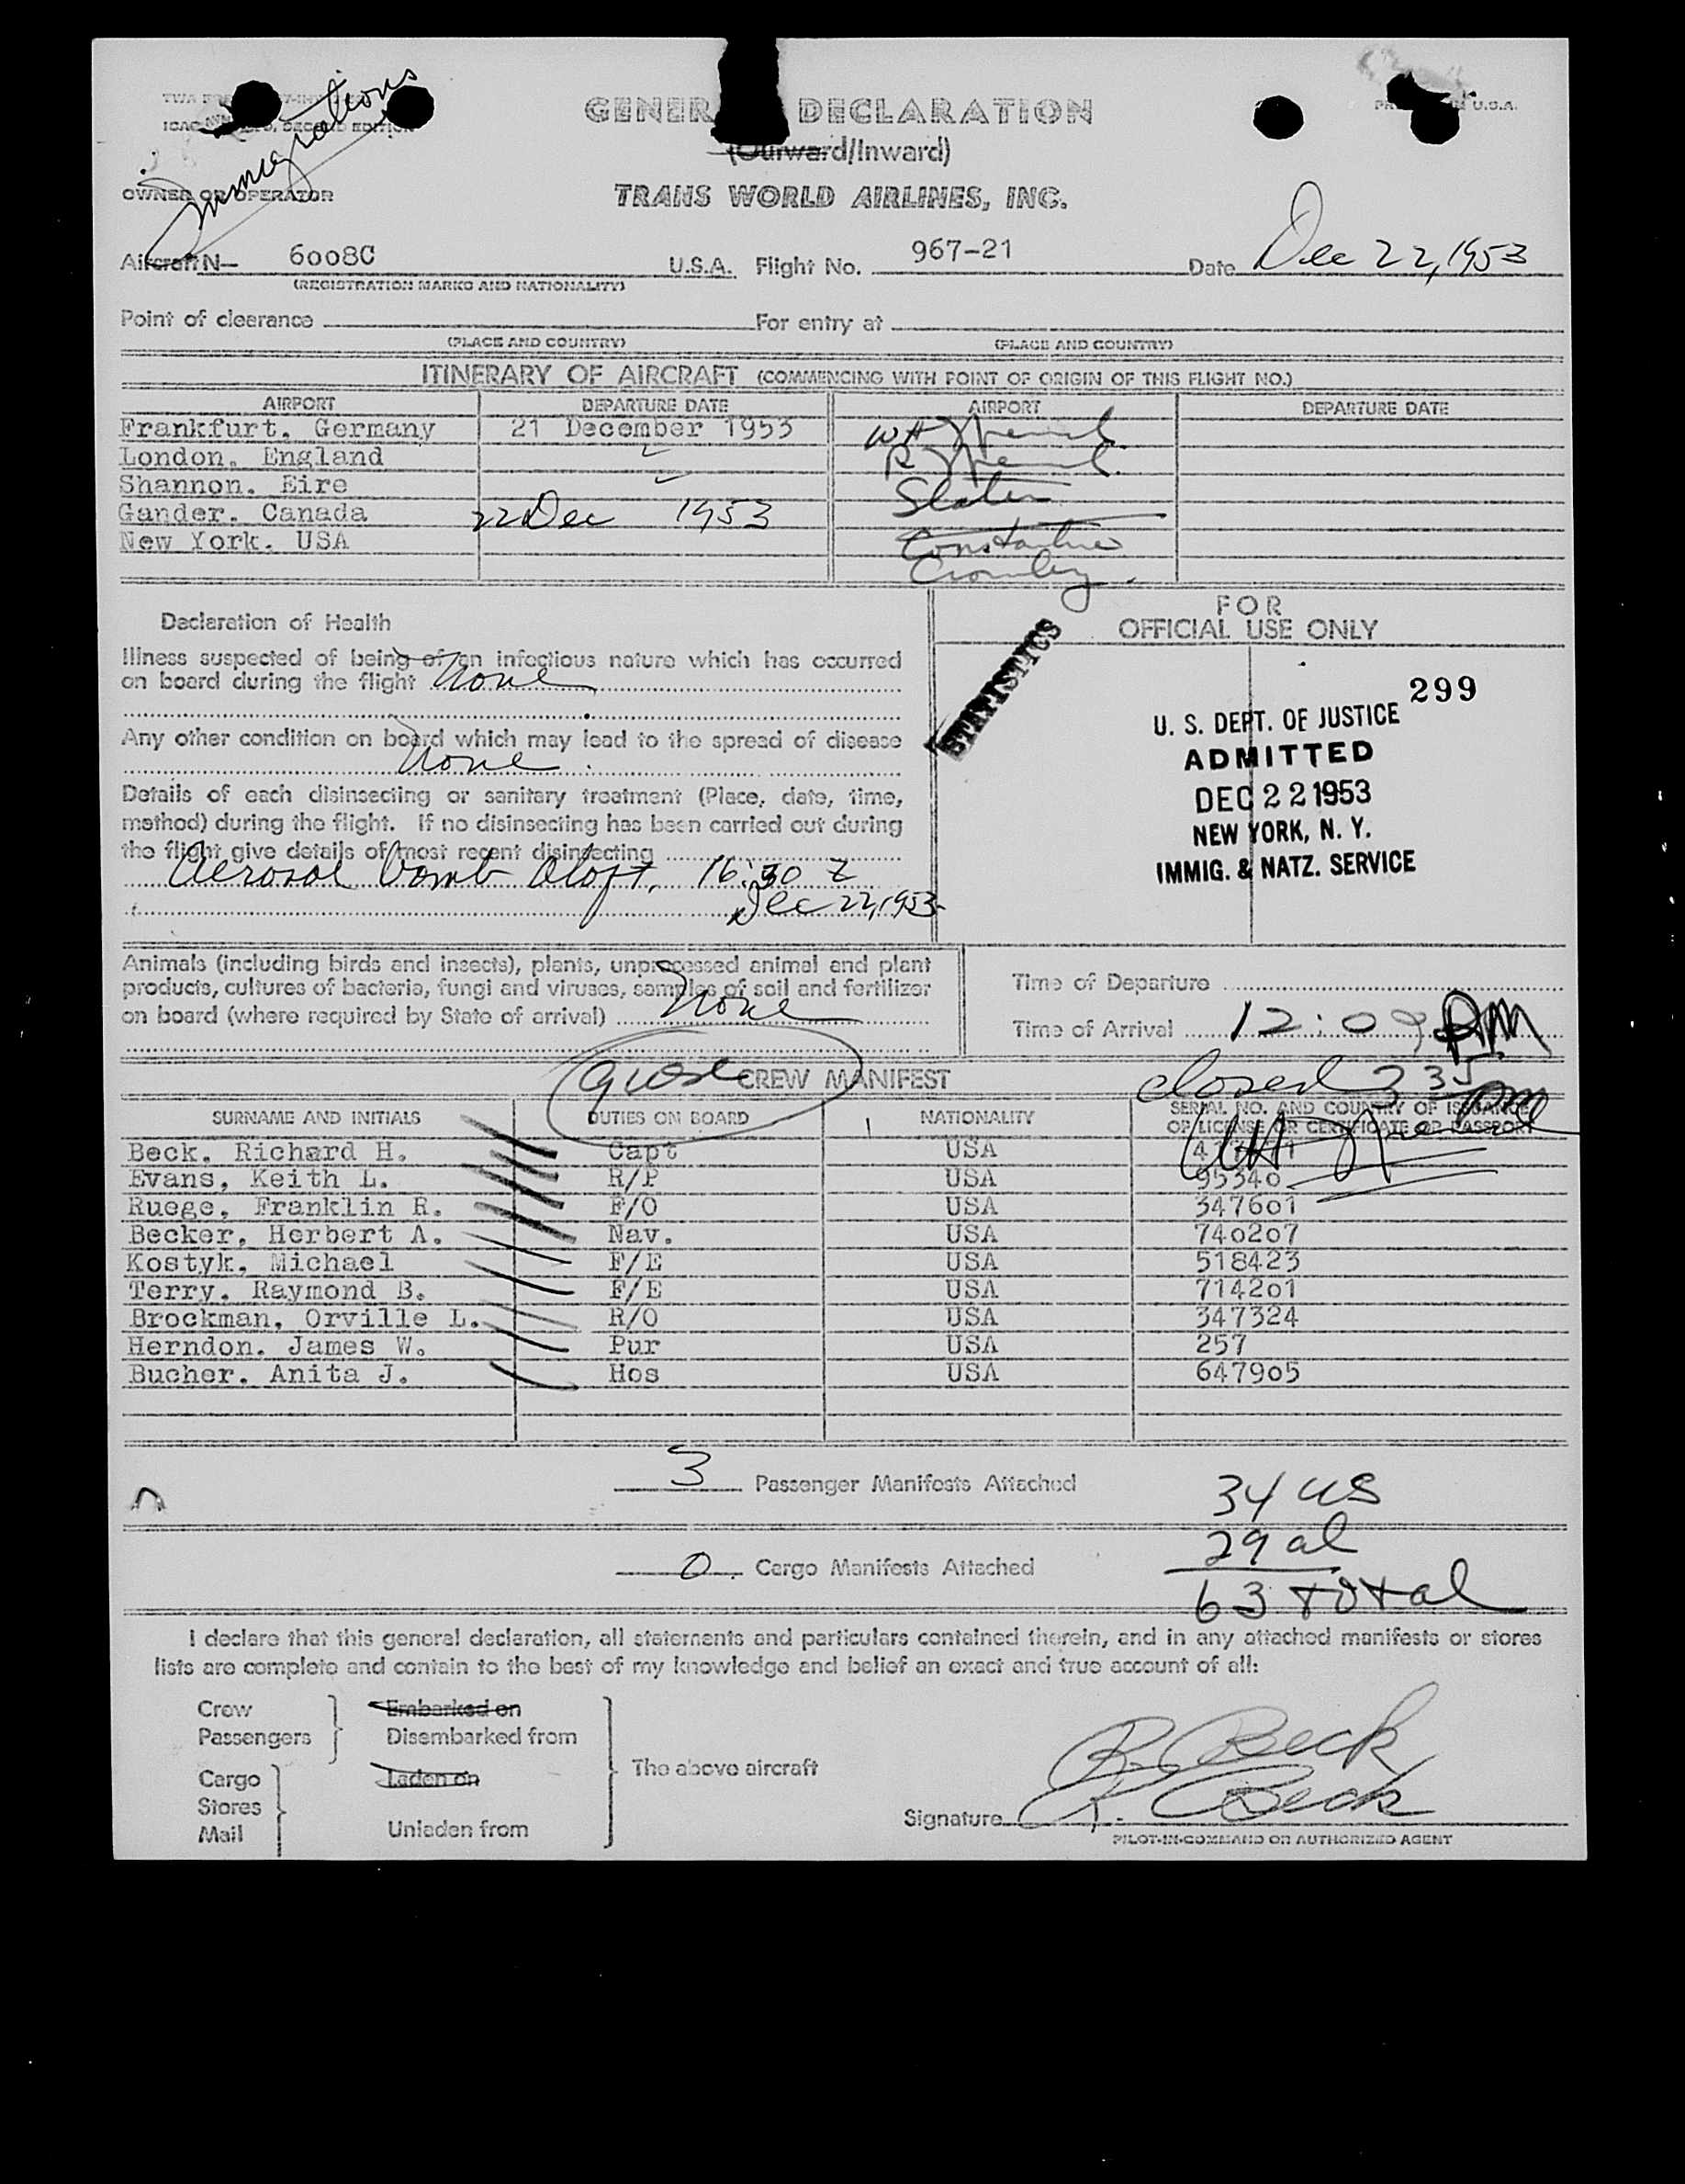 Immigrations
GENER DECLARATION
(Outward/Inward)
OWNER OR OPERATOR TRANS WORLD AIRLINES, INC.
Aircraft N— 6008C U.S.A. Flight No. 967-21 Date Dec 22, 1953
(REGISTRATION MARKS AND NATIONALITY)
Point of clearance For entry at
(PLACE AND COUNTRY) (PLACE AND COUNTRY)
ITINERARY OF AIRCRAFT (COMMENCING WITH POINT OF ORIGIN OF THIS FLIGHT NO.)
AIRPORT DEPARTURE DATE AIRPORT DEPARTURE DATE
Frankfurt. Germany 21 December 1953
London. England
Shannon. Eire Slater
Gander. Canada 22 Dec 1953
New York. USA Constantine
Crowley
Declaration of Health
Illness suspected of being of an infectious nature which has occurred
on board during the flight None
Any other condition on board which may lead to the spread of disease
None
Details of each disinsecting or sanitary treatment (Place, date, time,
method) during the flight. If no disinsecting has been carried out during
the flight give details of most recent disinsecting
Aerosol bomb Aloft, 16:30 Z
Dec 22, 1953
FOR
OFFICIAL USE ONLY
STATISTICS
299
U. S. DEPT. OF JUSTICE
ADMITTED
DEC 22 1953
NEW YORK, N. Y.
IMMIG. & NATZ. SERVICE
Animals (including birds and insects), plants, unprocessed animal and plant
products, cultures of bacteria, fungi and viruses, samples of soil and fertilizer
on board (where required by State of arrival) None
Time of Departure
Time of Arrival 12:09 PM
closed 335 pm
CREW MANIFEST
SURNAME AND INITIALS DUTIES ON BOARD NATIONALITY SERIAL NO. AND COUNTRY OF ISSUANCE
OF LICENSE OR CERTIFICATE OR PASSPORT
Beck. Richard H. Capt USA
Evans, Keith L. R/P USA 95340
Ruege, Franklin R. F/O USA 347601
Becker, Herbert A. Nav. USA 740207
Kostyk, Michael F/E USA 518423
Terry. Raymond B. F/E USA 714201
Brockman, Orville L. R/O USA 347324
Herndon. James W. Pur USA 257
Bucher. Anita J. Hos USA 647905
3 Passenger Manifests Attached 34 US
29 al
0 Cargo Manifests Attached
63 total
I declare that this general declaration, all statements and particulars contained therein, and in any attached manifests or stores
lists are complete and contain to the best of my knowledge and belief an exact and true account of all:
Crew Embarked on
Passengers Disembarked from
The above aircraft
Cargo Laden on
Stores
Mail Unladen from
R. Beck
Signature R. Beck
PILOT-IN-COMMAND OR AUTHORIZED AGENT